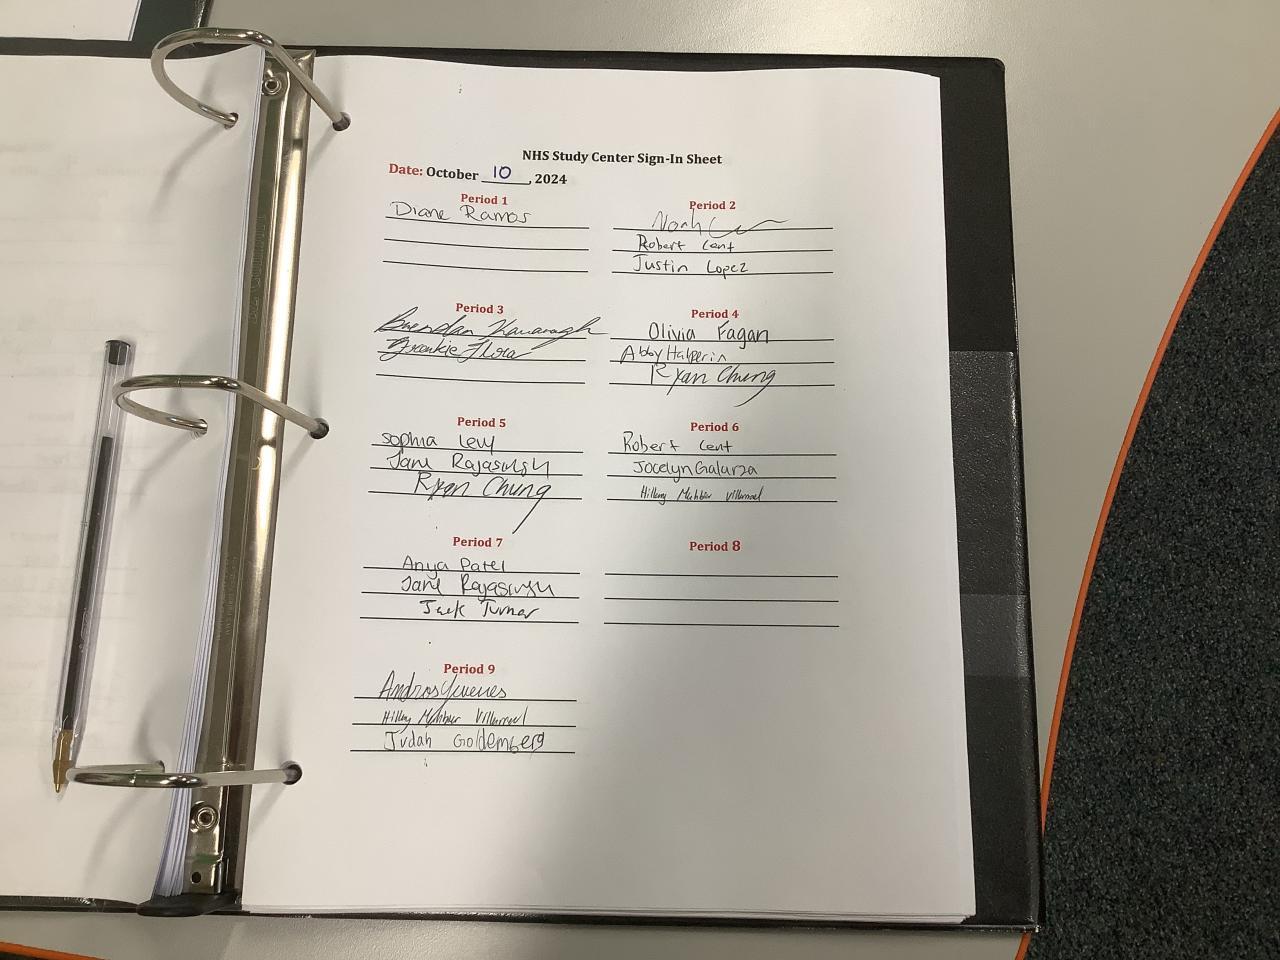 NHS Study Center Sign-In Sheet
Date: October 10, 2024
Period 1
Diane Ramos
Period 2
Noah
Robert Cent
Justin Lopez
Period 3
Brendan Kavanagh
Frankie Flora
Period 4
Olivia Fagan
Abby Halperin
Ryan Chung
Period 5
Sophia Levy
Jane Rajasingh
Ryan Chung
Period 6
Robert Cent
Jocelyn Galarza
Hillary
Period 7
Anya Patel
Jane Rajasingh
Jack Turner
Period 8
Period 9
Hillary
Judah Goldemberg